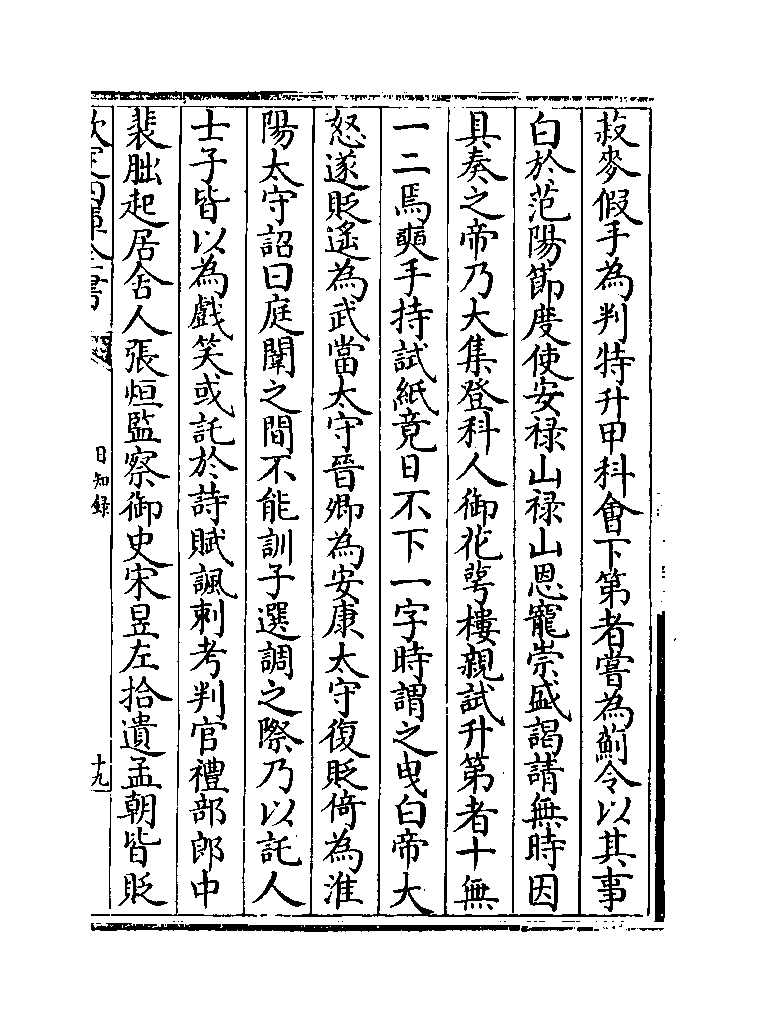 菽麥假手為判特升甲科會下第者嘗為薊令以其事
白於范陽節度使安禄山禄山恩寵崇盛謁請無時因
具奏之帝乃大集登科人御花萼樓親試升第者十無
一二焉奭手持試紙竟日不下一字時謂之曳白帝大
怒遂貶遙為武當太守晉卿為安康太守復貶倚為淮
陽太守詔曰庭闈之間不能訓子選調之際乃以託人
士子皆以為戲笑或託於詩賦諷刺考判官禮部郎中
裴朏起居舍人張烜監察御史宋昱左拾遺孟朝皆貶
欽定四庫全書
日知錄
十九